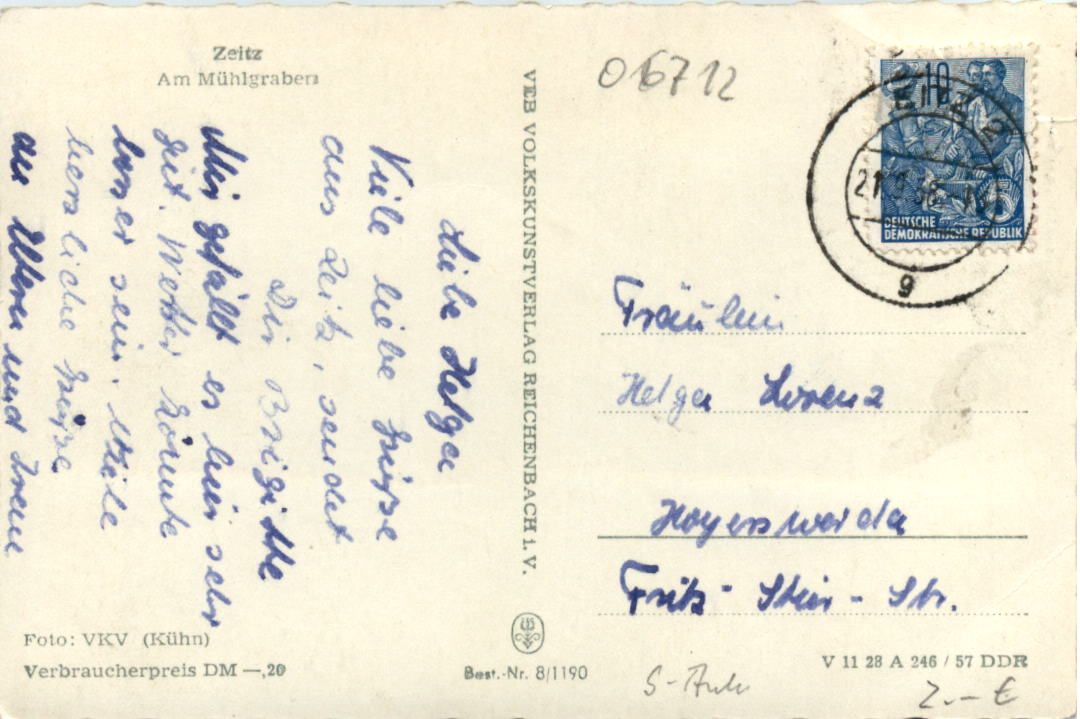 Zeitz
Am Mühlgraben
06712
Liebe Helga
Viele liebe Grüße
aus Zeitz, sendet
Dir Brigitte
Mir gefällt es hier sehr
gut. Wetter könnte
besser sein. Viele
herzliche Grüße
an Eltern und Irene
Foto: VKV (Kühn)
Verbraucherpreis DM —,20
VEB VOLKSKUNSTVERLAG REICHENBACH i. V.
Best.-Nr. 8/1190
10
5
DEUTSCHE
DEMOKRATISCHE REPUBLIK
ZEITZ 2
g
Fräulein
Helga Lorenz
Hoyerswerda
Fritz-Stein-Str.
V 11 28 A 246 / 57 DDR
2.-- €